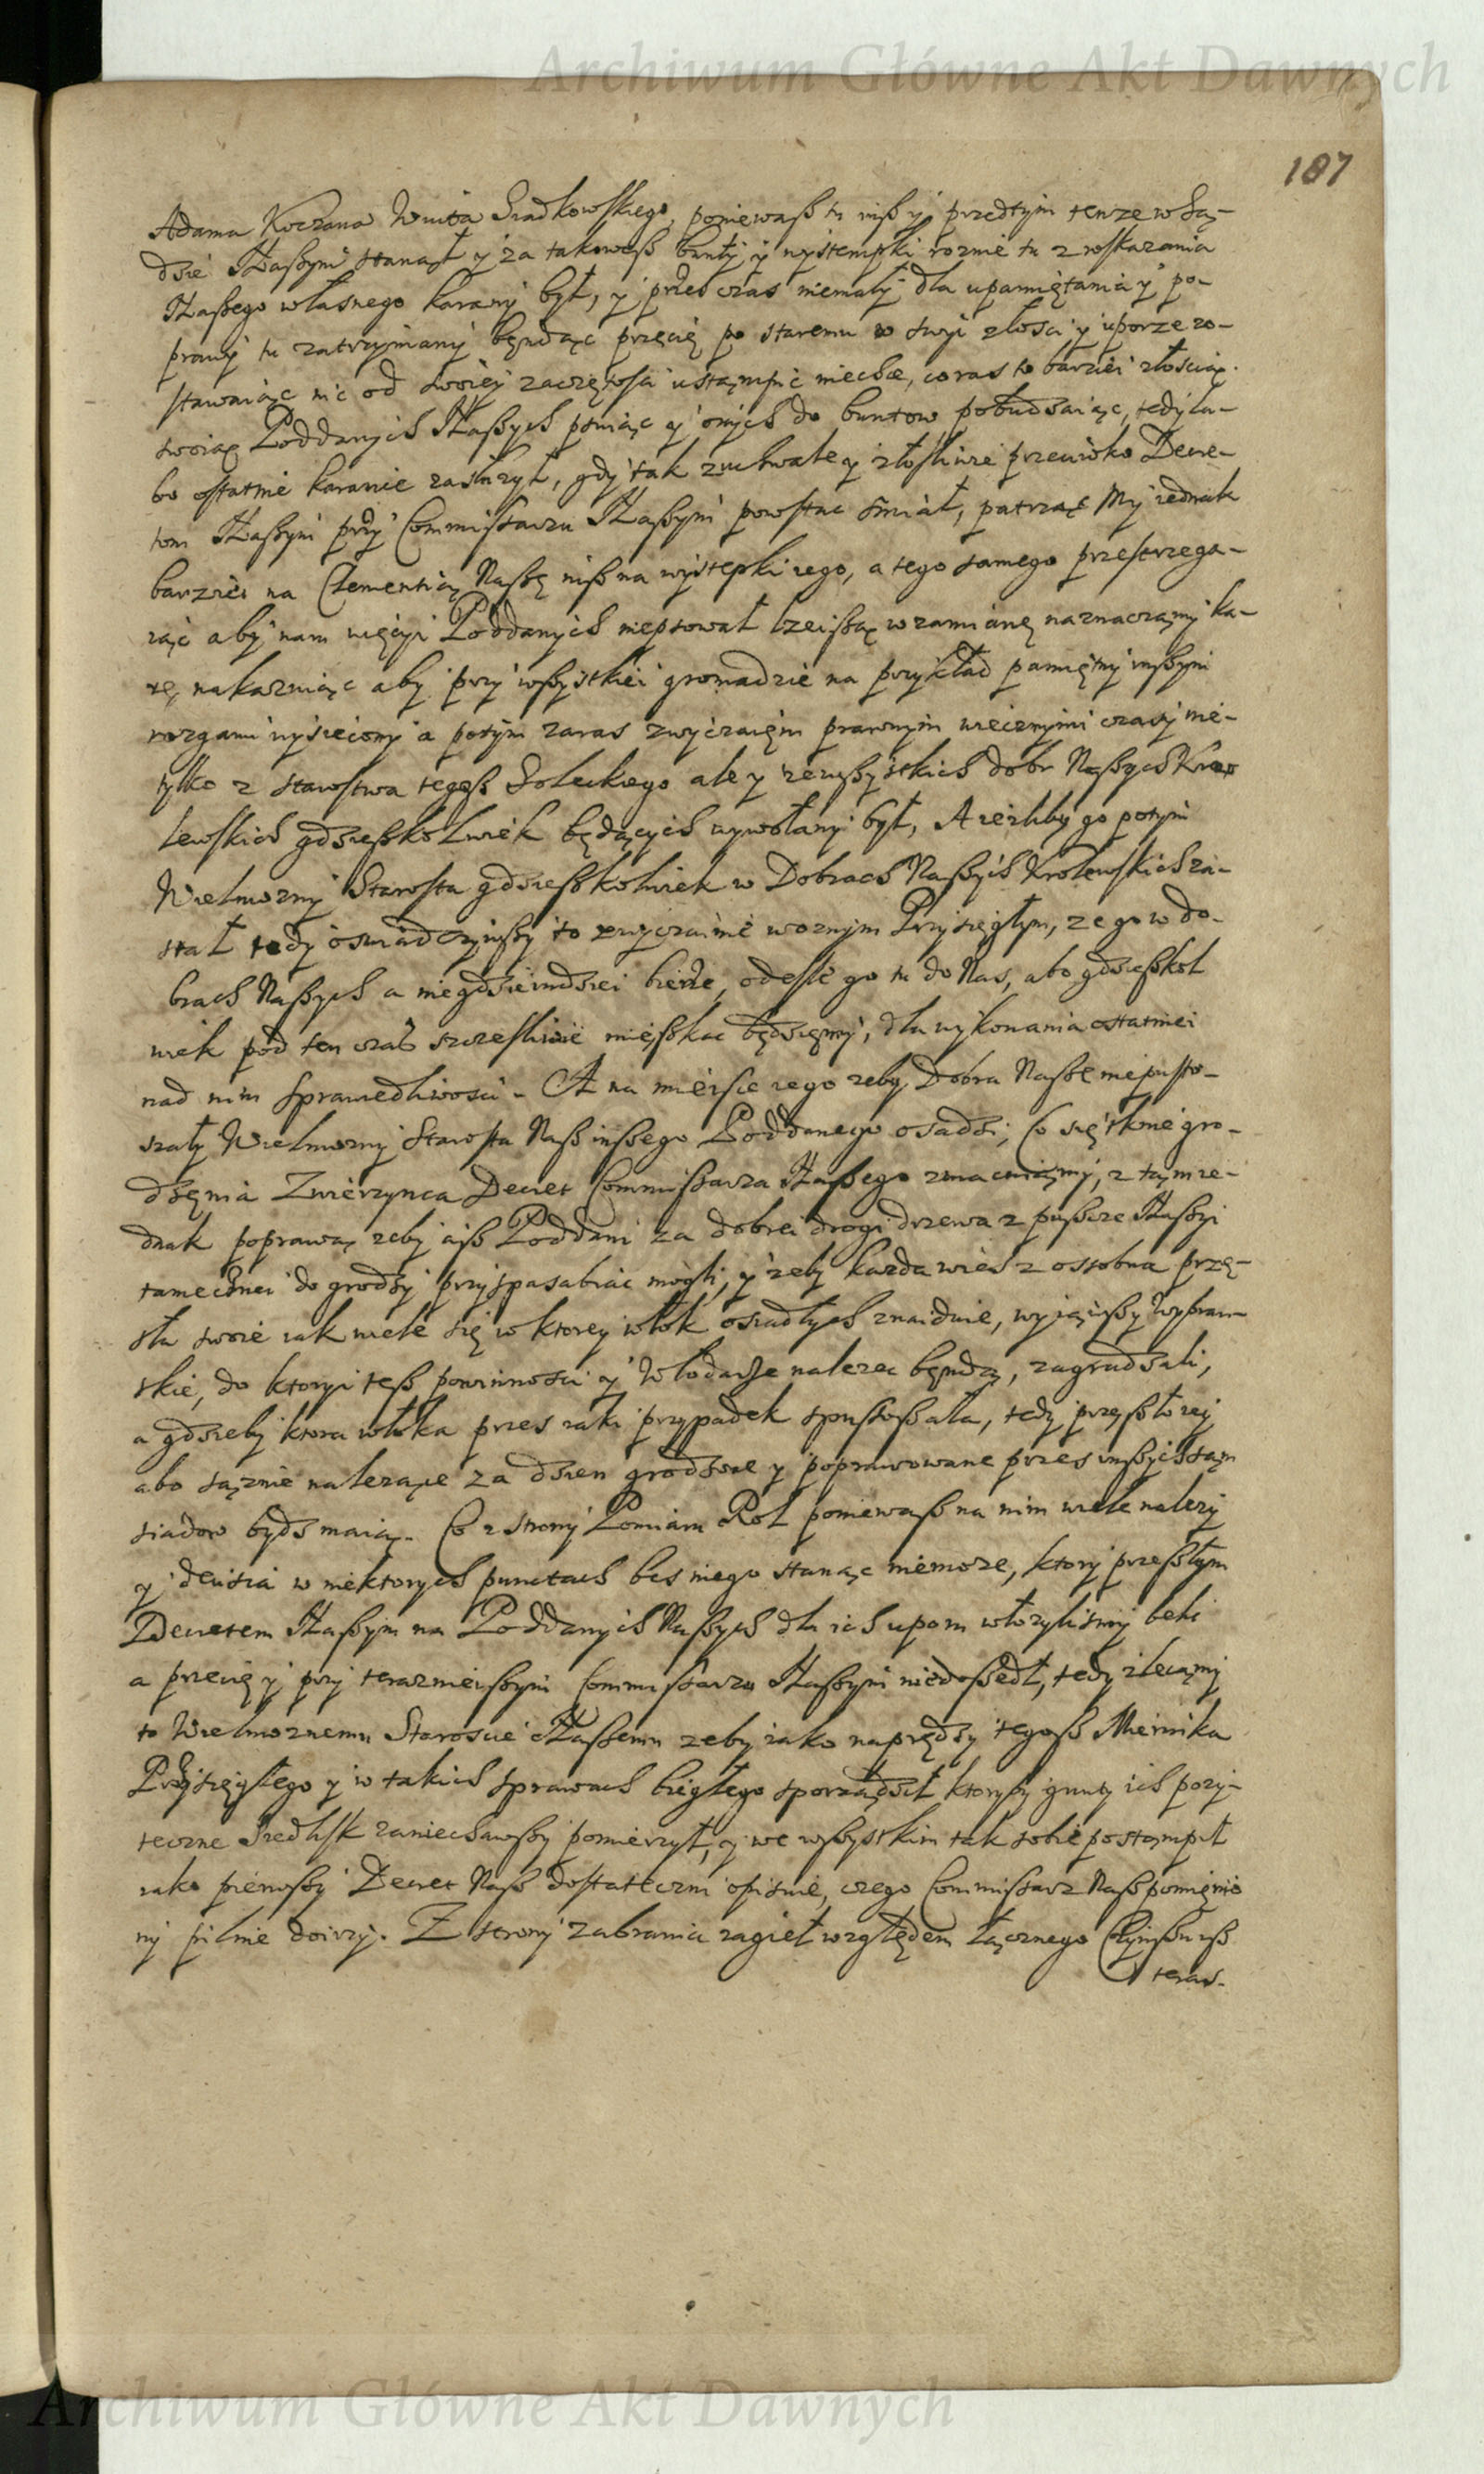 Archiwum Główne Akt Dawnych
187
Adama Koczana Wuita Siadkowskiego, poniewaß tu iuß y przedtym tenze w Są-
dzie Naßym stanął y za takoweß bunty y wystempki roznie tu z roskazania
Naßego własnego karany był, y przes czas niemały dla upamiętania y po-
prawy tu zatrzymany będąc przecię po staremu w swyi złosci y uporze zo-
stawaiąc nic od swoiey zawziętosci ustąmpić niechce, coras to barziei złoscią
swoią Poddanych Naßych psuiąc y onych do buntow pobudzaiąc, tedy lu-
bo ostatnie karanie zasłuzył, gdy tak zuchwale y złosliwie przeciwko Decre-
tom Naßym przy Commissarzu Naßym powstac smiał, patrząc My iednak
barziei na Clementią Naßę niß na wystepki iego, a tego samego przestrzega-
iąc aby nam więcyi Poddanych niepsował lzeißą w zamianę naznaczamy ka-
rę nakazuiąc aby przy wßystkiei gromadzie na przykład pamiętny inßym
rozgami wysieczony a potym zaras zwyczaięm prawnym wiecznymi czasy nie-
tylko z starostwa tegoß Soleckiego ale y zewßystkich dobr Naßych Kro-
lewskich gdzießkolwiek będących wywołany był, A iezliby go potym
Wielmozny Starosta gdzießkolwiek w Dobrach Naßych Krolewskich za-
stał tedy oswiadczywßy to zwyczainie woznym Przysięgłym, ze go w do-
brach Naßych a niegdzieindziei bierze, odesle go tu do Nas, abo gdzießkol
wiek pod ten czas szczesliwie mießkac będzięmy, dla wykonania ostatniei
nad nim sprawiedliwosci. A na mieisce iego zeby Dobra Naße niepusto-
szały Wielmozny Starosta Naß inßego Poddanego osadzi; Co się tknie gro-
dzęnia Zwierzynca Decret Commissarza Naßego zmacniamy, z tąm ie-
dnak poprawą zeby ciß Poddani za dobrei drogi drzewa z pußcze Naßyi
tamecznei do grodzy przyspasabiac mogli, y zeby kazda wies z ossobna przę-
sła swoie iak wiele się w ktorey włok osiadłych znaiduie, wyiąwßy Wybran-
skie, do ktoryi teß powinnosci y Włodarze nalezec będą, zagradzali,
a gdzieby ktora włoka przes iaki przypadek spustoßała, tedy przęsło iey
abo sąznie nalezące za dzien grodzone y poprawowane przes inßych sąm
siadow bydz maią. Co z strony Pomiaru Rol poniewaß na nim wiele nalezy
y decisia w niektorych punctach bes niego stanąc niemoze, ktory przeßłym
Decretem Naßym na Poddanych Naßych dla ich uporu włozylismy beli
a przecię y przy terazneißym Commissarzu Naßym niedoßedł, tedy zlecamy
to Wielmoznemu Staroscie Naßemu zeby iako naprędzy tegoß Miernika
Przysięgłego y w takich sprawach biegłego sporządził ktoryby grunty ich pozy-
teczne Siedlisk zaniechawßy pomierzył, y we wßystkim tak sobie postąmpił
iako pierwßy Decret Naß dostateczni opisuie, czego Commissarz Naß pomięnio
ny pilnie doirzy. Z strony zabrania iagieł względem łącznego Czynßu iß
teras-
Archiwum Główne Akt Dawnych